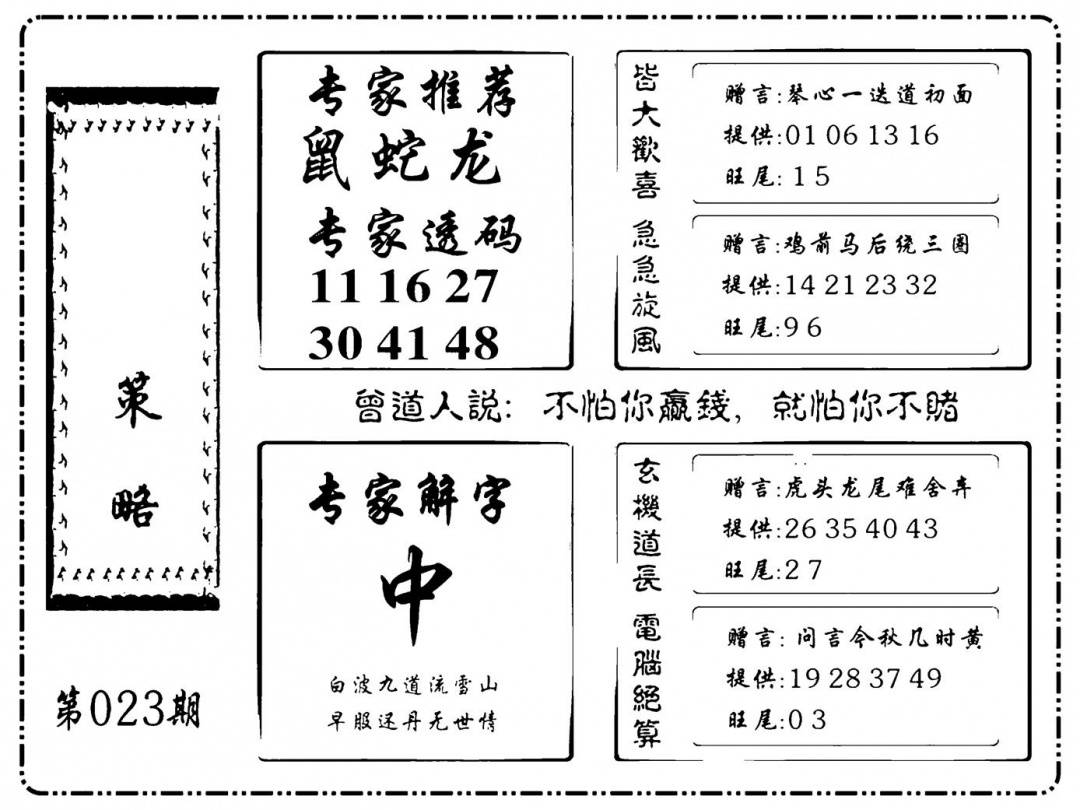 策略
第023期
专家推荐
鼠蛇龙
专家透码
11 16 27
30 41 48
皆大歡喜
赠言:琴心一迭道初面
提供:01 06 13 16
旺尾: 1 5
急急旋風
赠言:鸡前马后绕三圈
提供:14 21 23 32
旺尾:9 6
曾道人説: 不怕你贏錢, 就怕你不賭
专家解字
中
白波九道流雪山
早服还丹无世情
玄機道長
赠言:虎头龙尾难舍弃
提供:26 35 40 43
旺尾:2 7
電腦絕算
赠言: 问言今秋几时黄
提供:19 28 37 49
旺尾:0 3